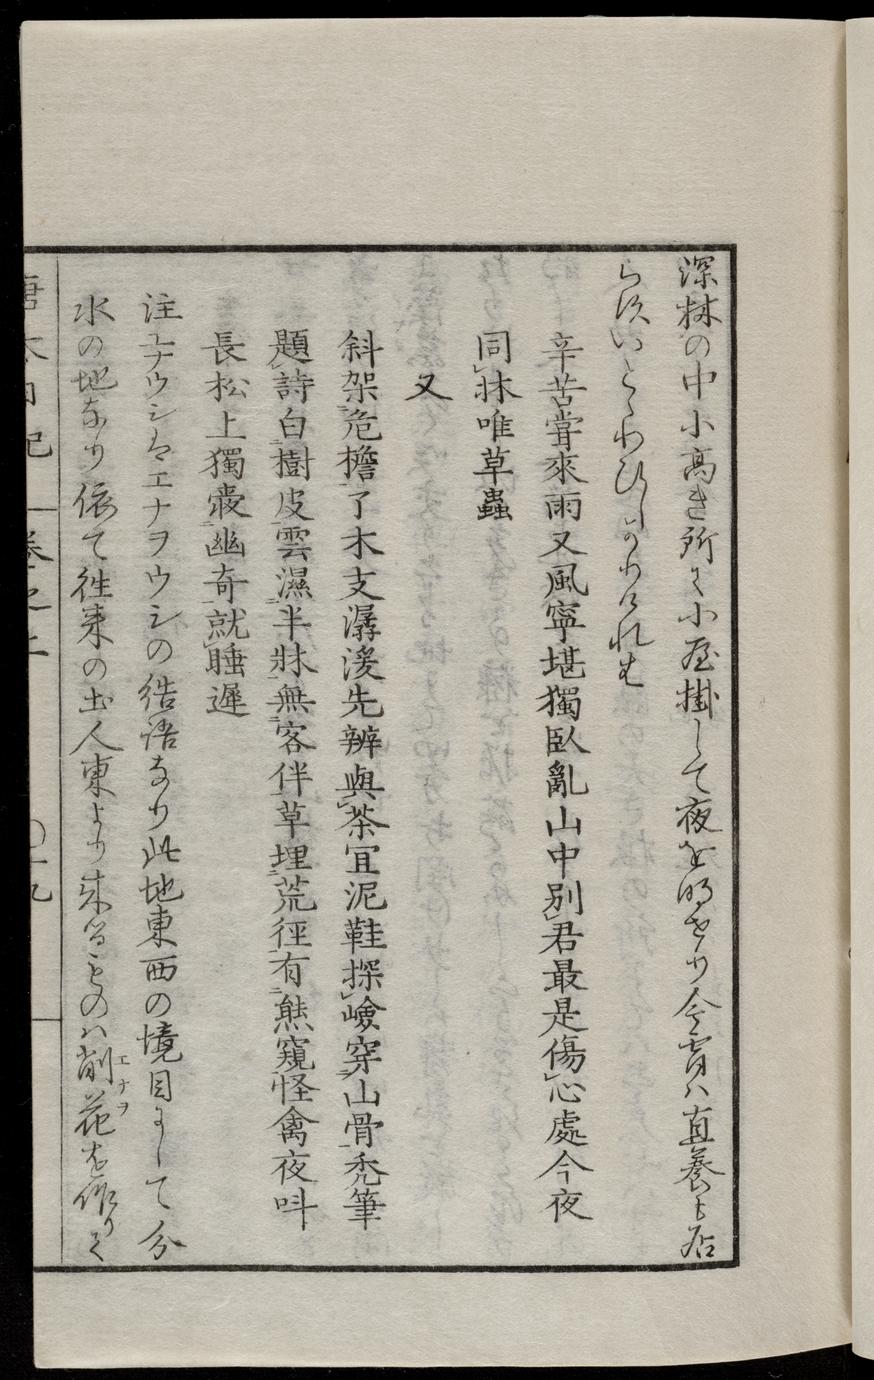 深林の中小高き所に小屋掛して夜を明せり今宵ハ直養も居
らすいとゝわひしかりけれは
辛苦甞來雨又風寧堪獨臥亂山中別君最是傷心處今夜
同牀唯草蟲
又
斜架危檐了木支潺湲先辨與茶宜泥鞋探嶮穿山骨禿筆
題詩白樹皮雲濕半牀無客伴草埋荒徑有熊窺怪禽夜呌
長松上獨愛幽奇就睡遲
注エナウシハエナヲウシの結語なり此地東西の境目にして分
水の地なり依て徃来の土人東より来るものハ削花を作りて
エナヲ
唐太日記 卷之上 〇十九